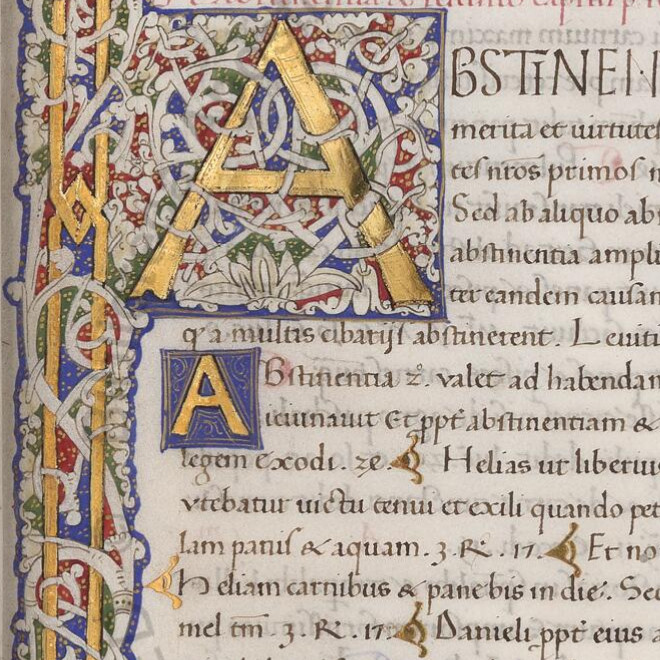 ABSTINEN
merita et virtutes
ces nr̄os primos
Sed ab aliquo ab
abstinentia ampli
ter eandem causam
q̄ a multis cibarijs abstinerent. Leviti
Abstinentia 2. valet ad habendam
ieiunavit Et ppt̄ abstinentiam &
legem Exodi. 34. Helias ut liberius
vtebatur victu tenui et exili quando pet
Iam panis & aquam. 3. R. 17. Et no
Heliam carnibus & pane bis in die. Sed
mel tm̄. 3. R. 17. Danieli ppt̄ eius a